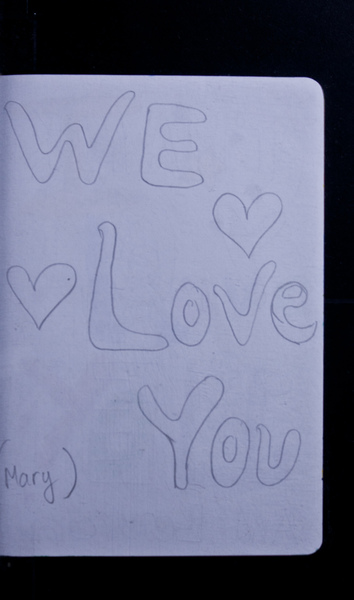 WE
Love
You
(Mary)